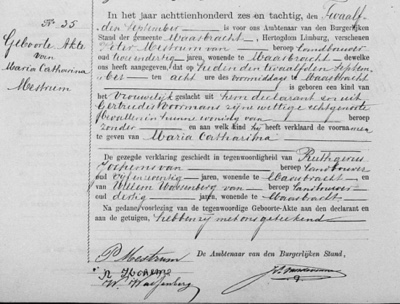 No. 25
Geboorte Akte
van
Maria Catharina
Mestrum
In het jaar achttienhonderd zes en tachtig, den Twaalf-
den September is voor ons Ambtenaar van den Burgerlijken
Stand der gemeente Maasbracht, Hertogdom Limburg, verschenen
Peter Mestrum van beroep Landbouwer
oud wonende te Maasbracht dewelke
ons heeft aangegeven, dat op heden den twaalfden Septem-
ber ten acht ure des voormiddags te Maasbracht
is geboren een kind van
het Vrouwelijk geslacht uit hem declarant en uit
Gertrudis Voormans zijne wettige echtgenoote
bevallen in hunne woning van beroep
zonder en aan welk kind hij heeft verklaard de voornamen
te geven van Maria Catharina
De gezegde verklaring geschied in tegenwoordigheid van Rutgerus
van beroep Landbouwer
oud wonende te Maasbracht
en van Willem van beroep Landbouwer
oud dertig wonende te Maasbracht
Na gedane voorlezing van de tegenwoordige Geboorte-Akte aan den declarant en
aan de getuigen, hebben zij met ons geteekend
De Ambtenaar van den Burgerlijken Stand,
P Mestrum
W.